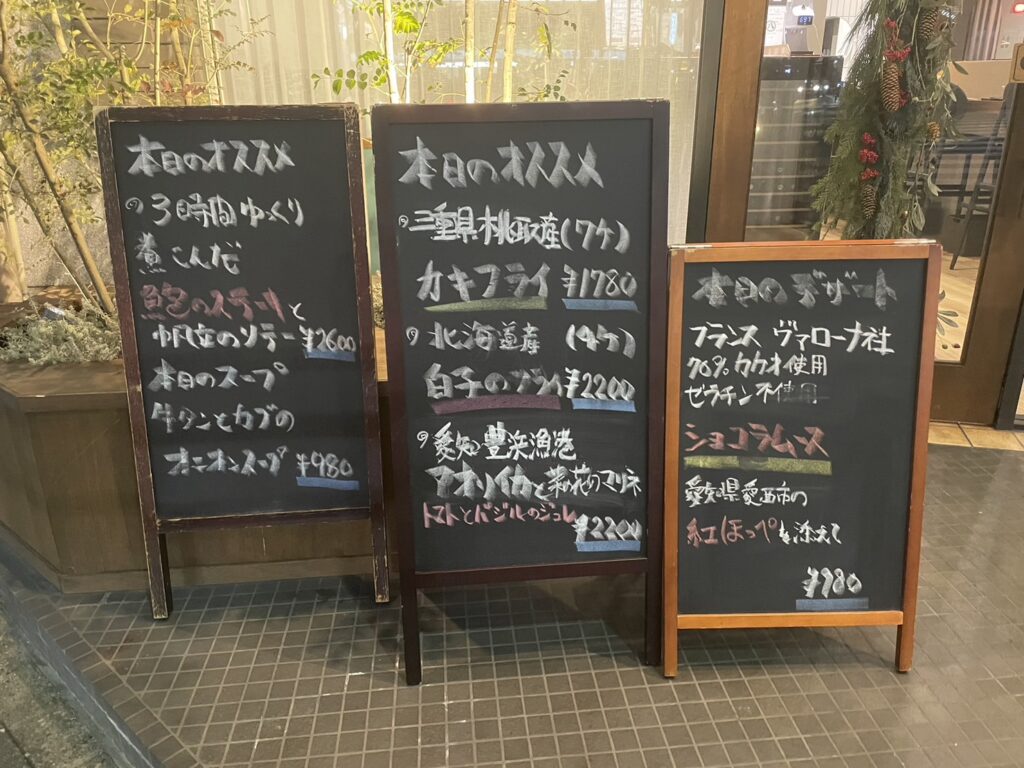 本日のオススメ
3時間ゆっくり
煮こんだ
鮑のステーキと
帆立のソテー ¥2600
本日のスープ
牛タンとカブの
オニオンスープ ¥980
本日のオススメ
三重県桃取産(7ケ)
カキフライ ¥1780
北海道産 (4ケ)
白子のフライ ¥2200
愛知 豊浜漁港
アオリイカと菜の花のマリネ
トマトとバジルのジュレ
¥2200
本日のデザート
フランス ヴァローナ社
70%カカオ使用
ゼラチン不使用
ショコラムース
愛知県愛西市の
紅ほっぺを添えて
¥980